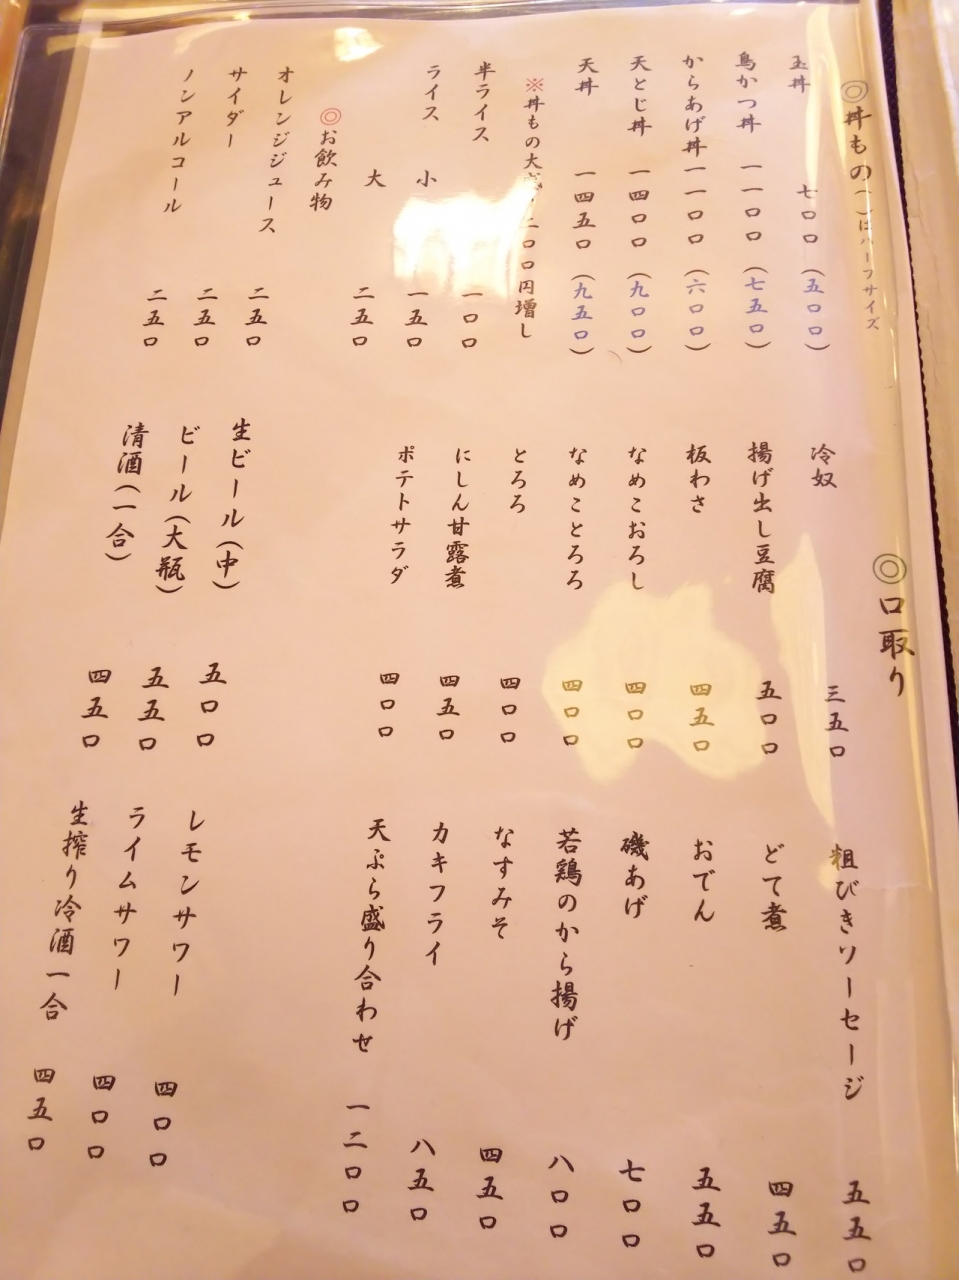 ◎丼もの()はハーフサイズ
玉丼 七〇〇(五〇〇)
鳥かつ丼 一一〇〇(七五〇)
からあげ丼 一一〇〇(六〇〇)
天とじ丼 一四〇〇(九〇〇)
天丼 一四五〇(九五〇)
※丼もの大 二〇〇円増し
半ライス 一〇〇
ライス 小 一五〇
大 二五〇
◎お飲み物
オレンジジュース 二五〇
サイダー 二五〇
ノンアルコール 二五〇
◎口取り
冷奴 三五〇
揚げ出し豆腐 五〇〇
板わさ 四五〇
なめこおろし 四〇〇
なめことろろ 四〇〇
とろろ 四〇〇
にしん甘露煮 四五〇
ポテトサラダ 四〇〇
生ビール(中) 五〇
ビール(大瓶) 五五〇
清酒(一合) 四五〇
粗びきソーセージ 五五〇
どて煮 四五〇
おでん 五五〇
磯あげ 七〇〇
若鶏のから揚げ 八〇〇
なすみそ 四五〇
カキフライ 八五〇
天ぷら盛り合わせ 一二〇〇
レモンサワー 四〇〇
ライムサワー 四〇〇
生搾り冷酒一合 四五〇